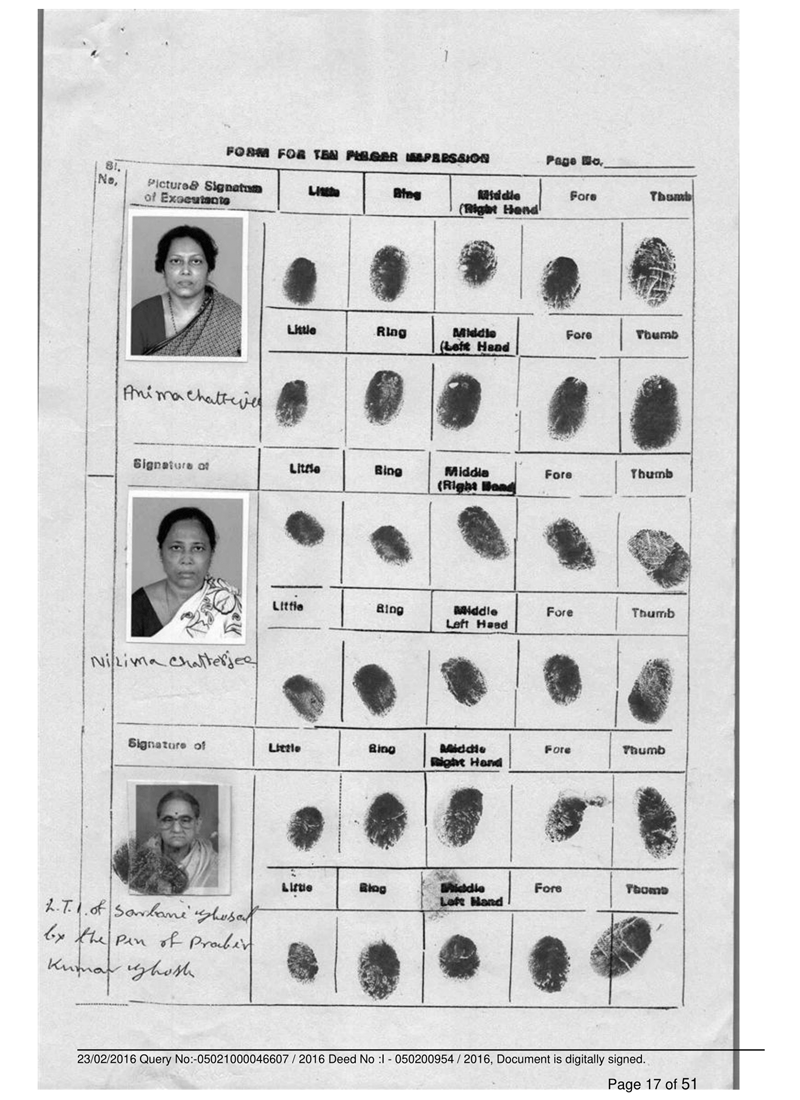 FORM FOR TEN FINGER IMPRESSION
Page No.
Sl. No.
Picture& Signature of Executants
Little Ring Middle Fore Thumb
(Right Hand
Little Ring Middle Fore Thumb
(Left Hand
Anima Chatterjee
Signature of
Little Ring Middle Fore Thumb
(Right Hand
Little Ring Middle Fore Thumb
Left Hand
Nilima Chatterjee
Signature of
Little Ring Middle Fore Thumb
Right Hand
Little Ring Middle Fore Thumb
Left Hand
L.T.I. of Sarbani Ghosal
by the pen of Prabir
Kumar Ghosh
23/02/2016 Query No:-05021000046607 / 2016 Deed No :I - 050200954 / 2016, Document is digitally signed.
Page 17 of 51